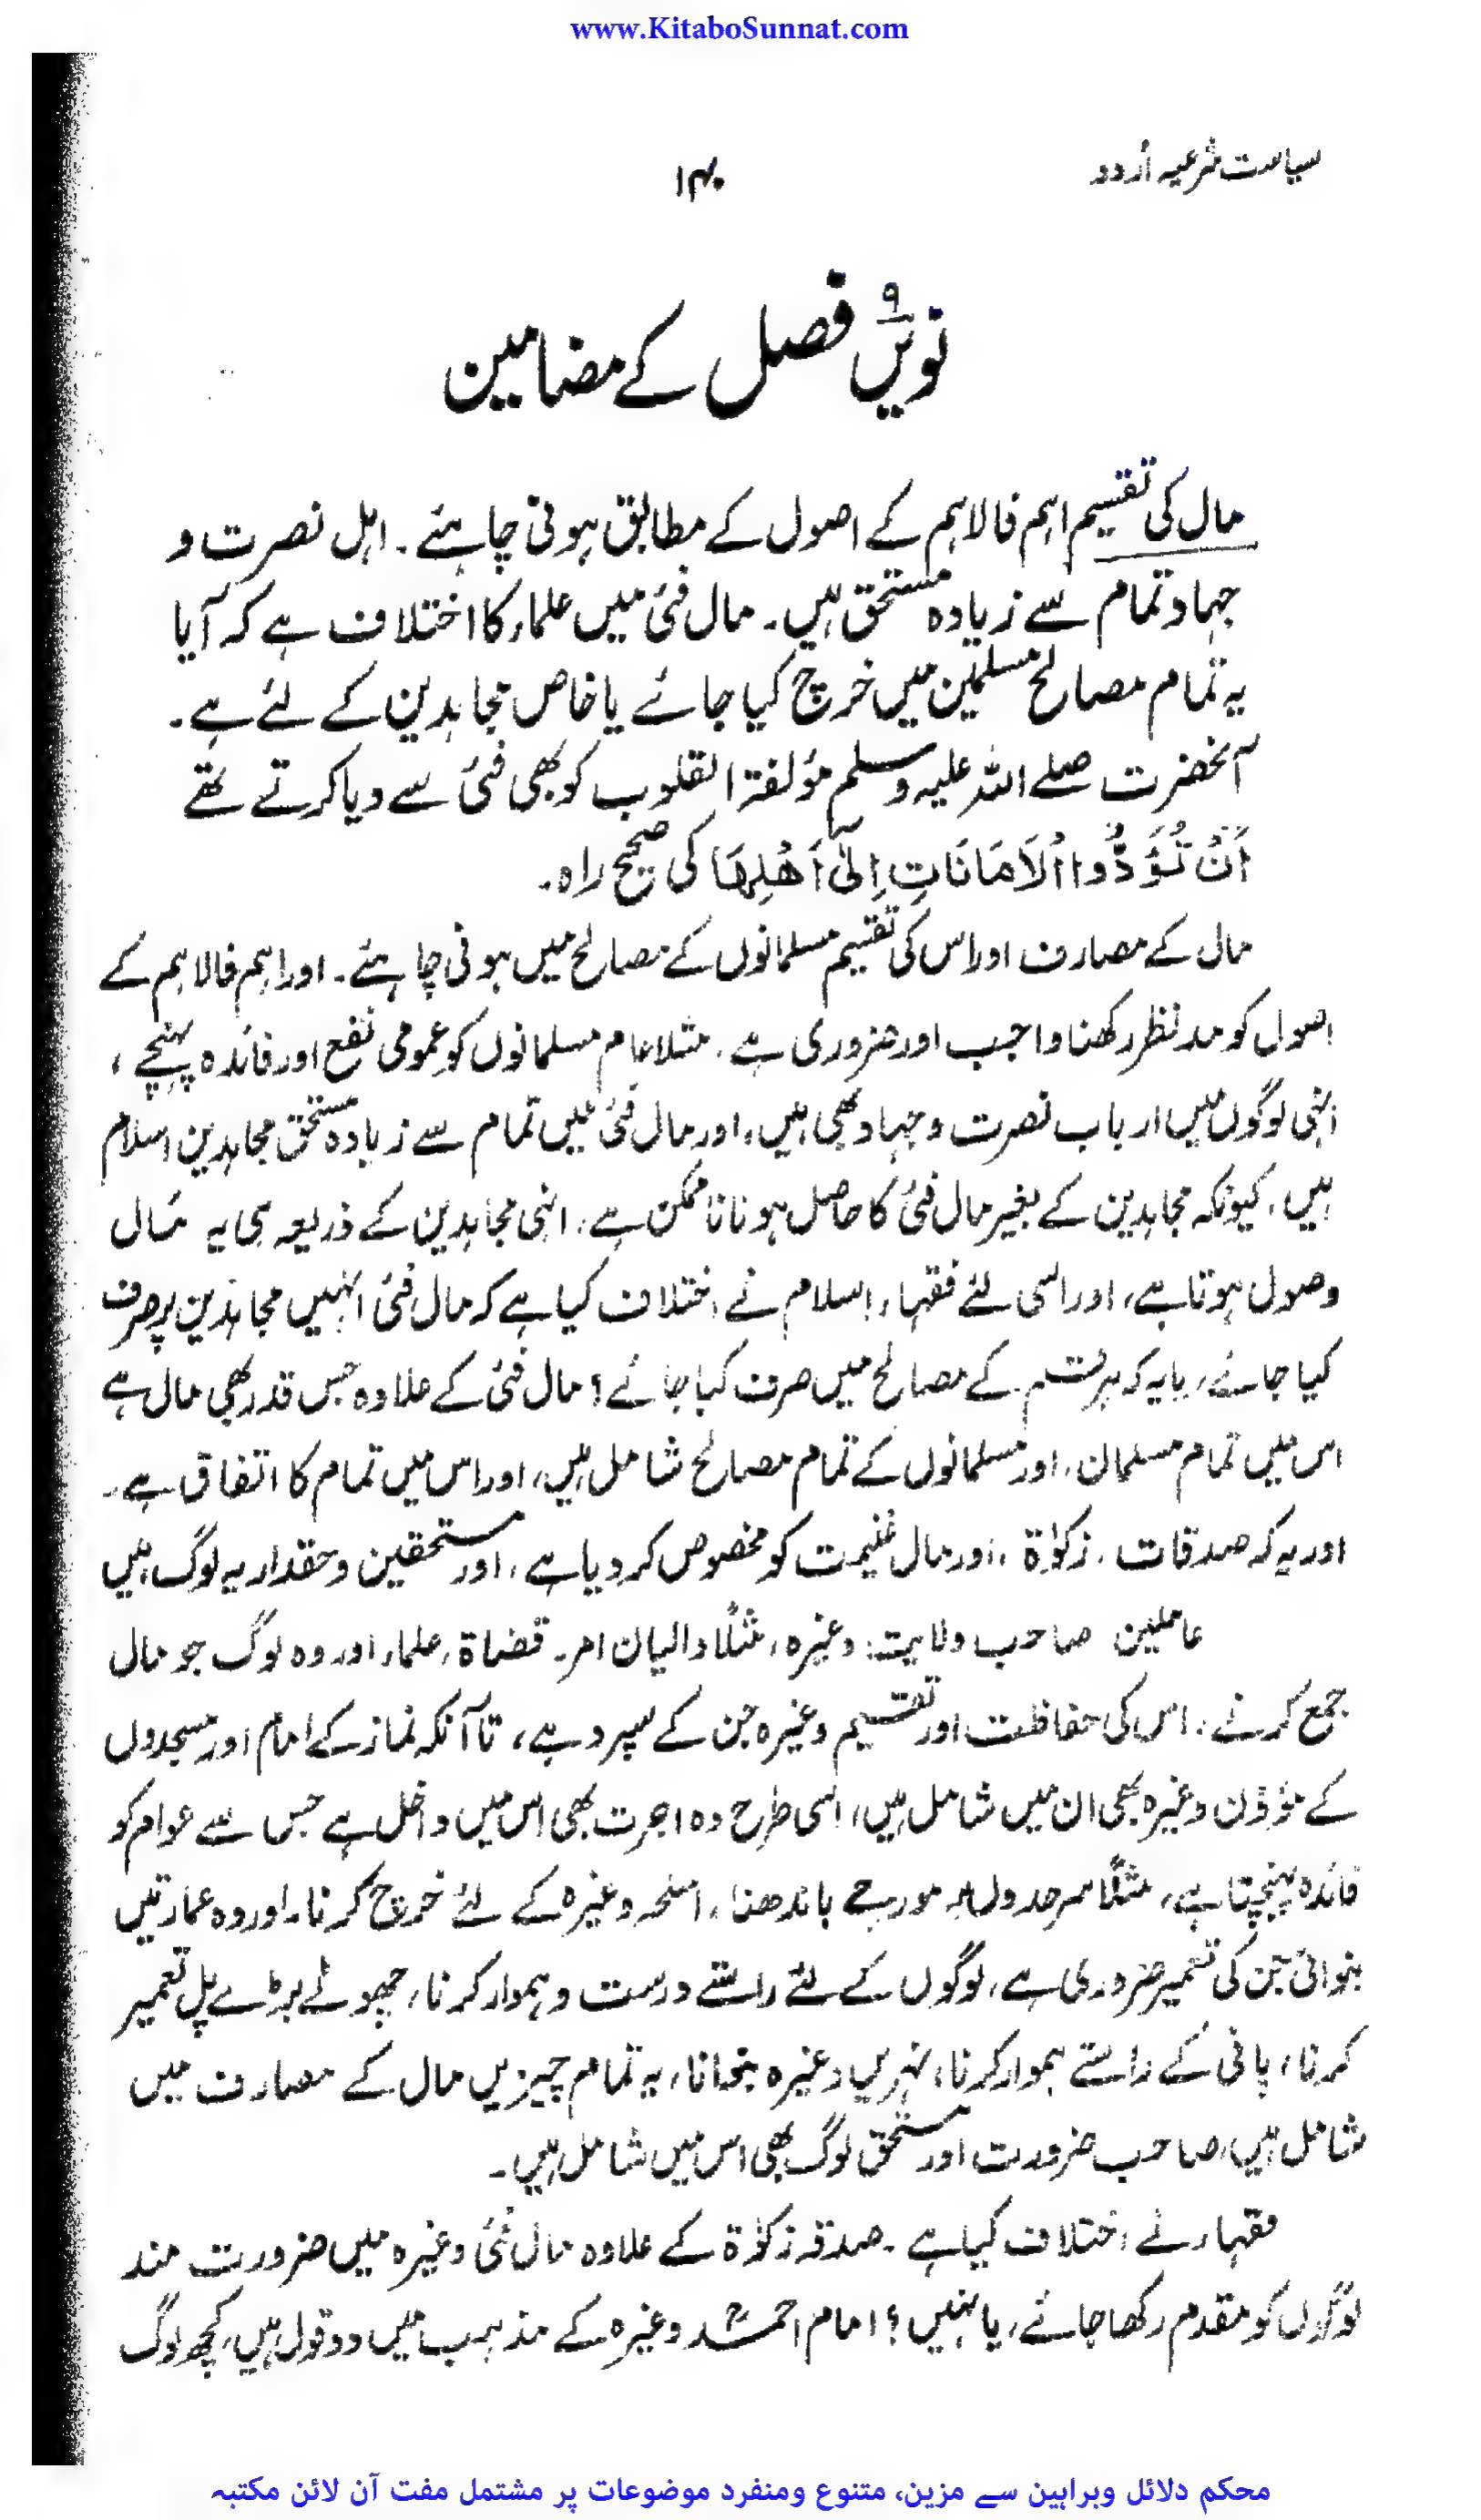 www.KitaboSunnat.com
سیاست شرعیہ اُردو
۱۴۰
نویں۹ فصل کے مضامین
مال کی تقسیم اہم فالاہم کے اصول کے مطابق ہونی چاہئے۔ اہل نصرت و
جہاد تمام سے زیادہ مستحق ہیں۔ مال فئی میں علماء کا اختلاف ہے کہ آیا
یہ تمام مصالح مسلمین میں خرچ کیا جائے یا خاص مجاہدین کے لئے ہے۔
آنحضرت صلے اللہ علیہ وسلم مؤلفۃ القلوب کو بھی فئی سے دیا کرتے تھے
اَنْ تُؤَدُّوا الْاَمَانَاتِ اِلیٰٓ اَهْلِهَا کی صحیح راہ۔
مال کے مصارف اور اس کی تقسیم مسلمانوں کے مصالح میں ہونی چاہئے۔ اور اہم فالاہم کے
اصول کو مدنظر رکھنا واجب اور ضروری ہے۔ مثلا عام مسلمانوں کو عمومی نفع اور فائدہ پہنچے،
انہی لوگوں میں ارباب نصرت و جہاد بھی ہیں، اور مال فئی میں تمام سے زیادہ مستحق مجاہدین اسلام
ہیں، کیونکہ مجاہدین کے بغیر مال فئی کا حاصل ہونا ناممکن ہے، انہی مجاہدین کے ذریعہ ہی یہ مال
وصول ہوتا ہے، اور اسی لئے فقہاء اسلام نے اختلاف کیا ہے کہ مال فئی انہیں مجاہدین پر صرف
کیا جائے، یا یہ کہ ہر قسم کے مصالح میں صرف کیا جائے؟ مال فئی کے علاوہ جس قدر بھی مال ہے
اس میں تمام مسلمان، اور مسلمانوں کے تمام مصالح شامل ہیں، اور اس میں تمام کا اتفاق ہے۔
اور یہ کہ صدقات، زکوٰۃ، اور مال غنیمت کو مخصوص کر دیا ہے، اور مستحقین و حقدار یہ لوگ ہیں
عاملین صاحب ولایت وغیرہ، مثلاً والیان امر۔ قضاۃ، علماء اور وہ لوگ جو مال
جمع کرنے، اس کی حفاظت اور تقسیم وغیرہ جن کے سپرد ہے، تا آنکہ نماز کے امام اور مسجدوں
کے مؤذن وغیرہ بھی ان میں شامل ہیں، اسی طرح وہ اجرت بھی اس میں داخل ہے جس سے عوام کو
فائدہ پہنچتا ہے، مثلاً سرحدوں پر مورچے باندھنا، اسلحہ وغیرہ کے لئے خرچ کرنا، اور وہ عمارتیں
بنوانی جن کی تعمیر ضروری ہے، لوگوں کے لئے راستے درست و ہموار کرنا، چھوٹے بڑے پل تعمیر
کرنا، پانی کے راستے ہموار کرنا، نہریں وغیرہ بنوانا، یہ تمام چیزیں مال کے مصارف میں
شامل ہیں، صاحب ضرورت اور مستحق لوگ بھی اس میں شامل ہیں۔
فقہاء نے اختلاف کیا ہے۔ صدقہ زکوٰۃ کے علاوہ مال فئی وغیرہ میں ضرورت مند
لوگوں کو مقدم رکھا جائے، یا نہیں؟ امام احمدؒ وغیرہ کے مذہب میں دو قول ہیں، کچھ لوگ
محکم دلائل وبراہین سے مزین، متنوع ومنفرد موضوعات پر مشتمل مفت آن لائن مکتبہ